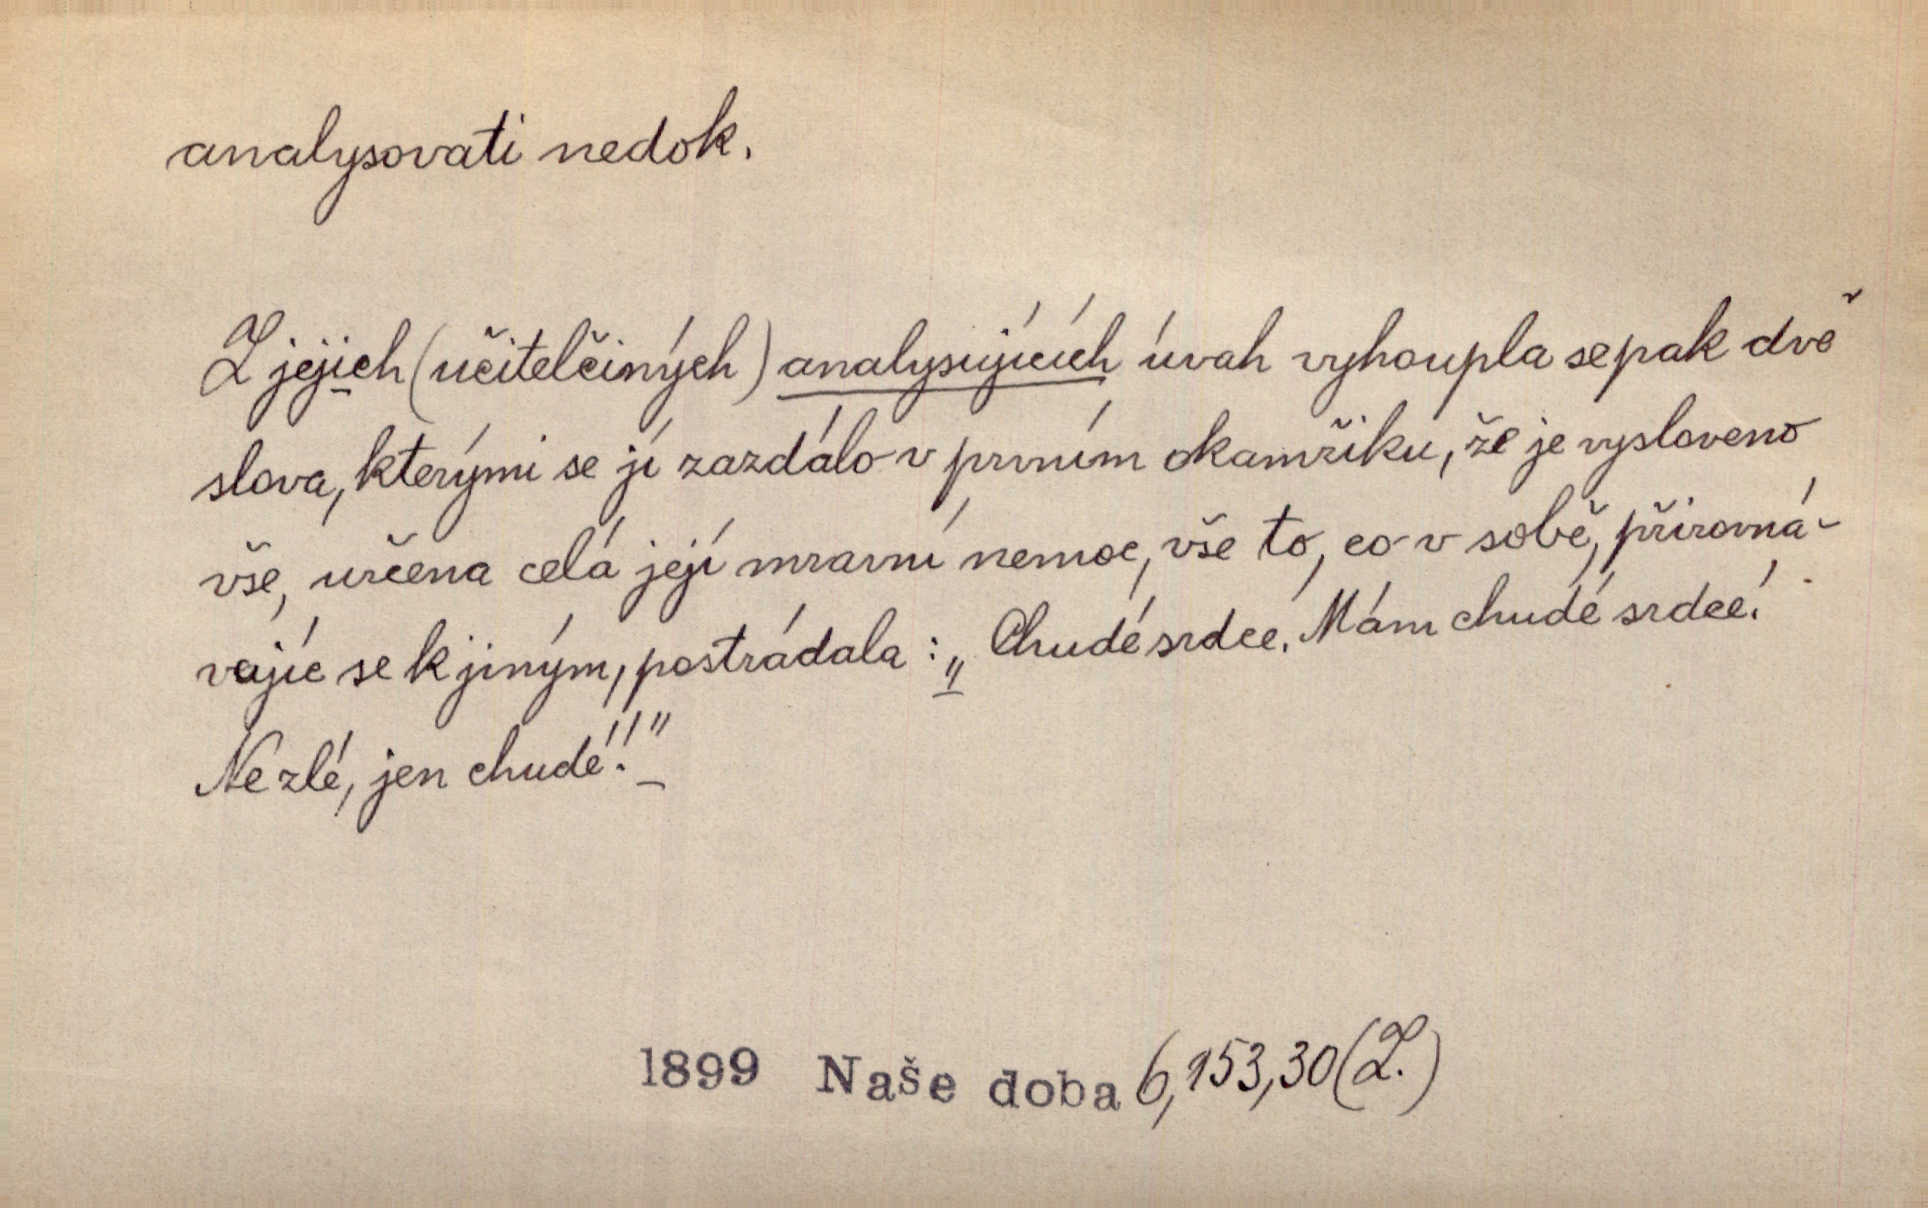 analysovati nedok.
Z jejich (učitelčiných) analysujících úvah vyhoupla se pak dvě
slova, kterými se jí zazdálo v prvním okamžiku, že je vysloveno
vše, určena celá její mravní nemoc, vše to, co v sobě, přirovná-
vajíc se k jiným, postrádala: „Chudé srdce. Mám chudé srdce!
Ne zlé, jen chudé!!"
1899 Naše doba 6,153,30 (Z.)